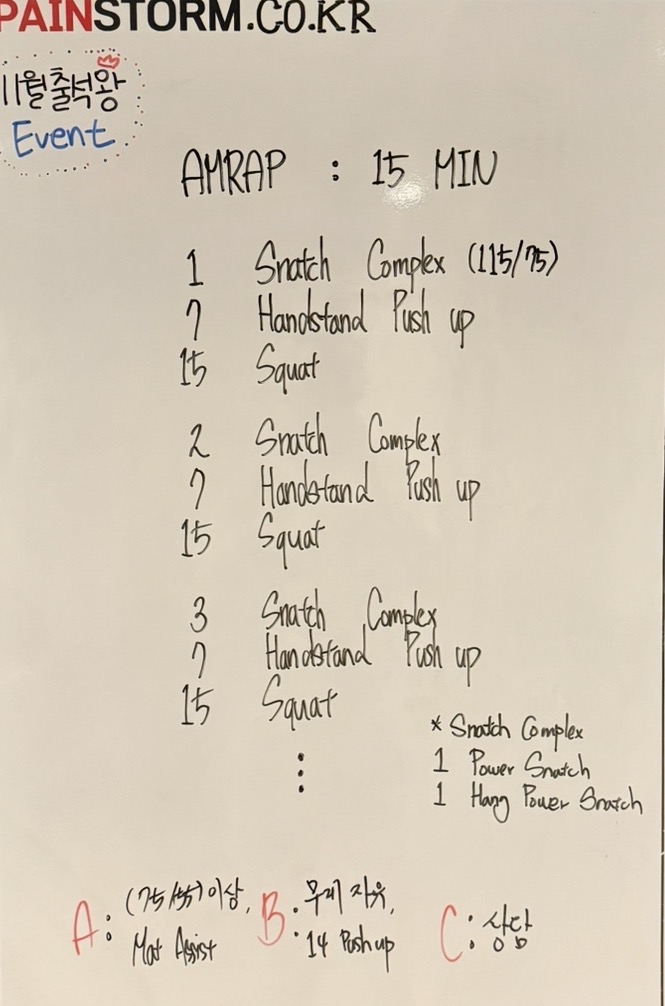 PAINSTORM.CO.KR
11월 출석왕
Event
AMRAP : 15 MIN
1 Snatch Complex (115/75)
7 Handstand Push up
15 Squat
2 Snatch Complex
7 Handstand Push up
15 Squat
3 Snatch Complex
7 Handstand Push up
15 Squat
⋮
* Snatch Complex
1 Power Snatch
1 Hang Power Snatch
A: (75/55) 이상,
Mat Assist
B: 무게 자유,
14 Push up
C: 상담